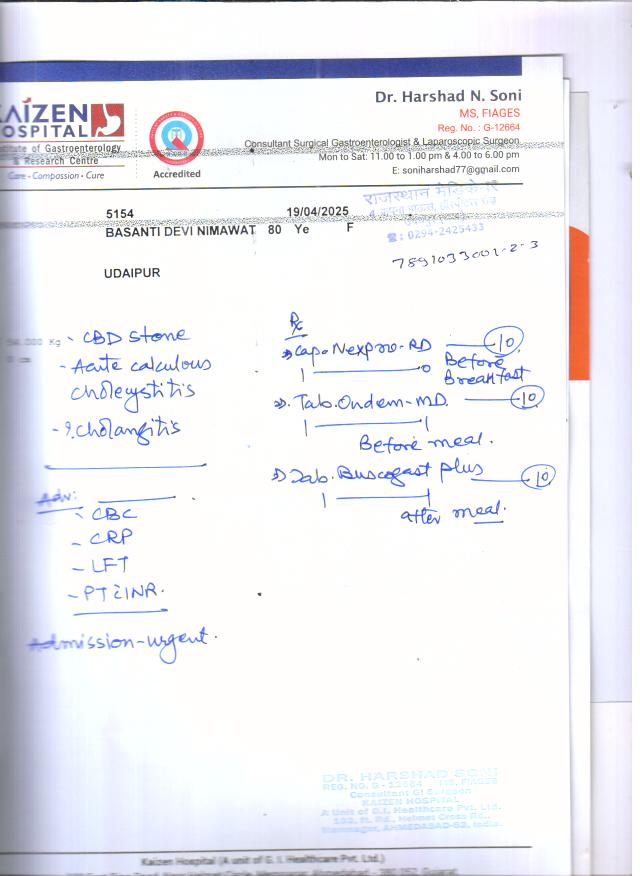 KAIZEN
HOSPITAL
Institute of Gastroenterology
& Research Centre
Care - Compassion - Cure
Accredited
Dr. Harshad N. Soni
MS, FIAGES
Reg. No. : G-12664
Consultant Surgical Gastroenterologist & Laparoscopic Surgeon
Mon to Sat: 11.00 to 1.00 pm & 4.00 to 6.00 pm
E: soniharshad77@gmail.com
राजस्थान
☎: 0294-2425433
7891033001-2-3
5154 19/04/2025
BASANTI DEVI NIMAWAT 80 Ye F
UDAIPUR
Kg
- CBD stone
- Acute calculous
cholecystitis
- ?. Cholangitis
Adv:
- CBC
- CRP
- LFT
- PT c̄ INR.
Admission-urgent.
Rx
Cap. Nexpro-RD 10
1 0 Before
Breakfast
Tab. Ondem-MD. 10
1 1
Before meal.
Tab. Buscogast plus 10
1 1
after meal.
DR. HARSHAD SONI
REG. NO. G - 12664 MS, FIAGES
Consultant GI Surgeon
KAIZEN HOSPITAL
A Unit of G.I. Healthcare Pvt. Ltd.
132, Ft. Rd., Helmet Cross Rd.,
Memnagar, AHMEDABAD-52, India.
Kaizen Hospital (A unit of G. I. Healthcare Pvt. Ltd.)